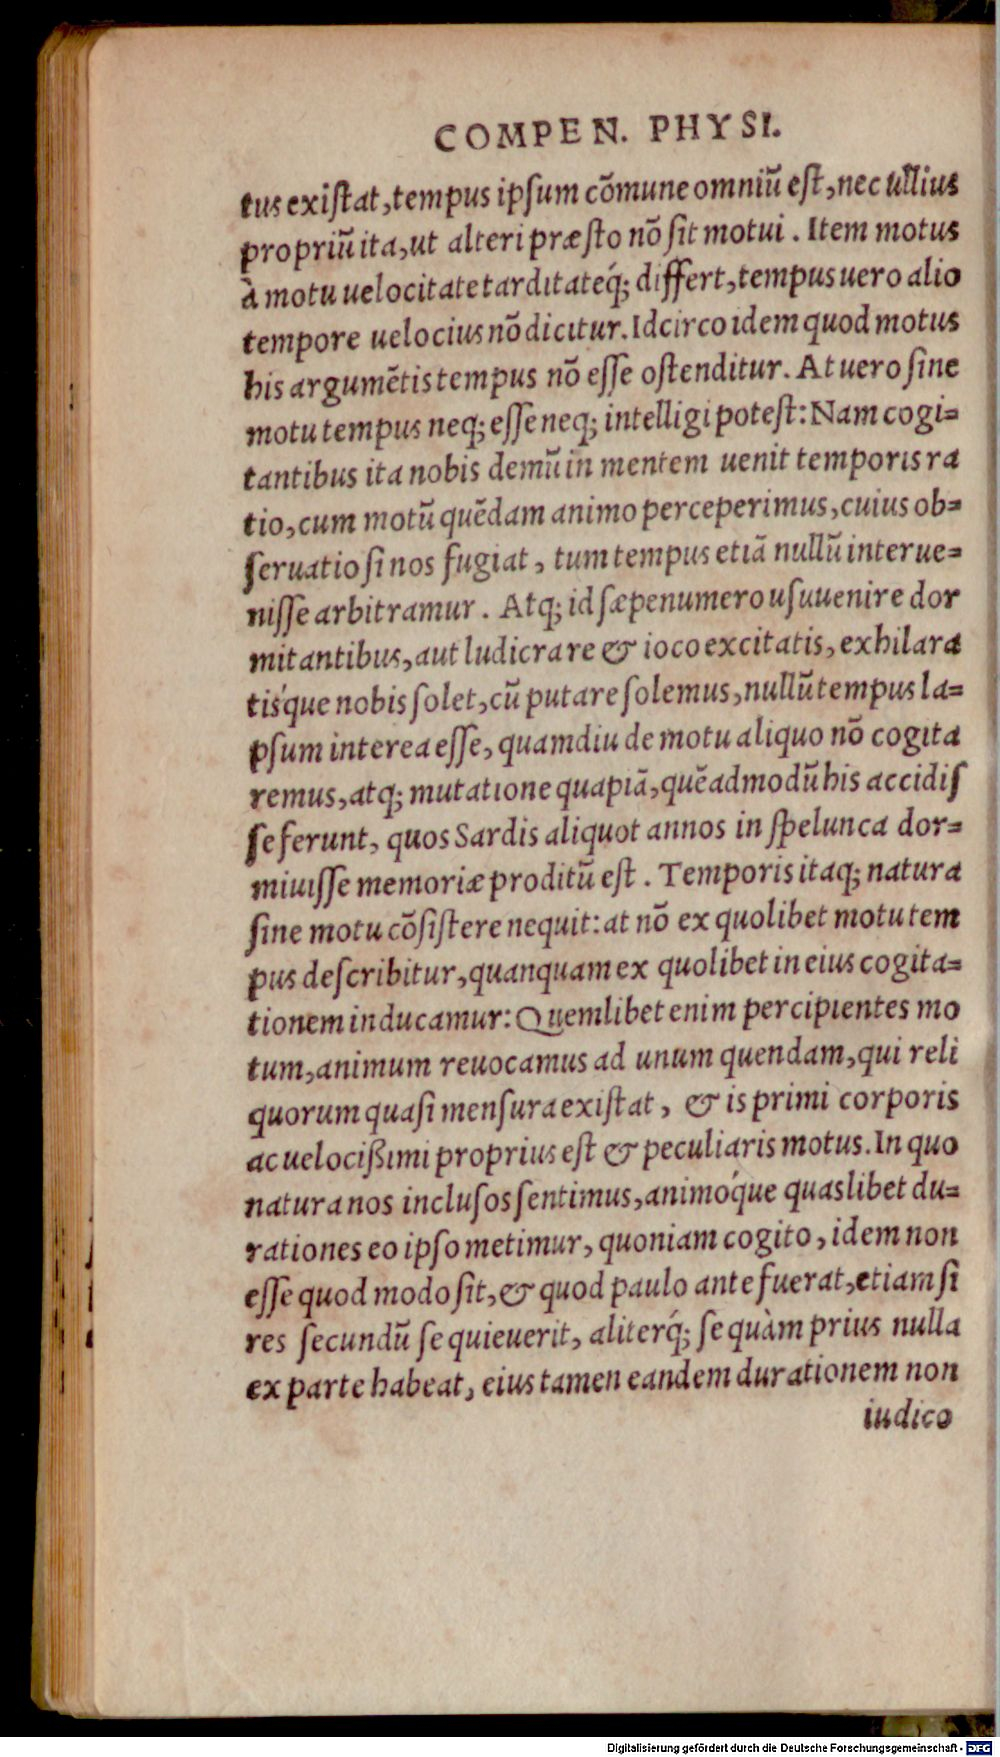 COMPEN. PHYSI.
tus exiſtat, tempus ipſum cõmune omniũ eſt, nec ullius
propriũ ita, ut alteri præſto nõ ſit motui. Item motus
à motu uelocitate tarditateq́; differt, tempus uero alio
tempore uelocius nõ dicitur. Idcirco idem quod motus
his argumẽtis tempus nõ eſſe oſtenditur. At uero ſine
motu tempus neq; eſſe neq; intelligi poteſt: Nam cogi=
tantibus ita nobis demũ in mentem uenit temporis ra
tio, cum motũ quẽdam animo perceperimus, cuius ob=
ſeruatio ſi nos fugiat, tum tempus etiã nullũ interue=
niſſe arbitramur. Atq; id ſæpenumero uſuuenire dor
mitantibus, aut ludicra re & ioco excitatis, exhilara
tisq́ue nobis ſolet, cũ putare ſolemus, nullũ tempus la=
pſum interea eſſe, quamdiu de motu aliquo nõ cogita
remus, atq; mutatione quapiã, quẽadmodũ his accidiſ
ſe ferunt, quos Sardis aliquot annos in ſpelunca dor=
miuiſſe memoriæ proditũ eſt. Temporis itaq; natura
ſine motu cõſiſtere nequit: at nõ ex quolibet motu tem
pus deſcribitur, quanquam ex quolibet in eius cogita=
tionem inducamur: Quemlibet enim percipientes mo
tum, animum reuocamus ad unum quendam, qui reli
quorum quaſi menſura exiſtat, & is primi corporis
ac uelocißimi proprius eſt & peculiaris motus. In quo
natura nos incluſos ſentimus, animoq́ue quaslibet du=
rationes eo ipſo metimur, quoniam cogito, idem non
eſſe quod modo ſit, & quod paulo ante fuerat, etiam ſi
res ſecundũ ſe quieuerit, aliterq́; ſe quàm prius nulla
ex parte habeat, eius tamen eandem durationem non
iudico
Digitalisierung gefördert durch die Deutsche Forschungsgemeinschaft - DFG